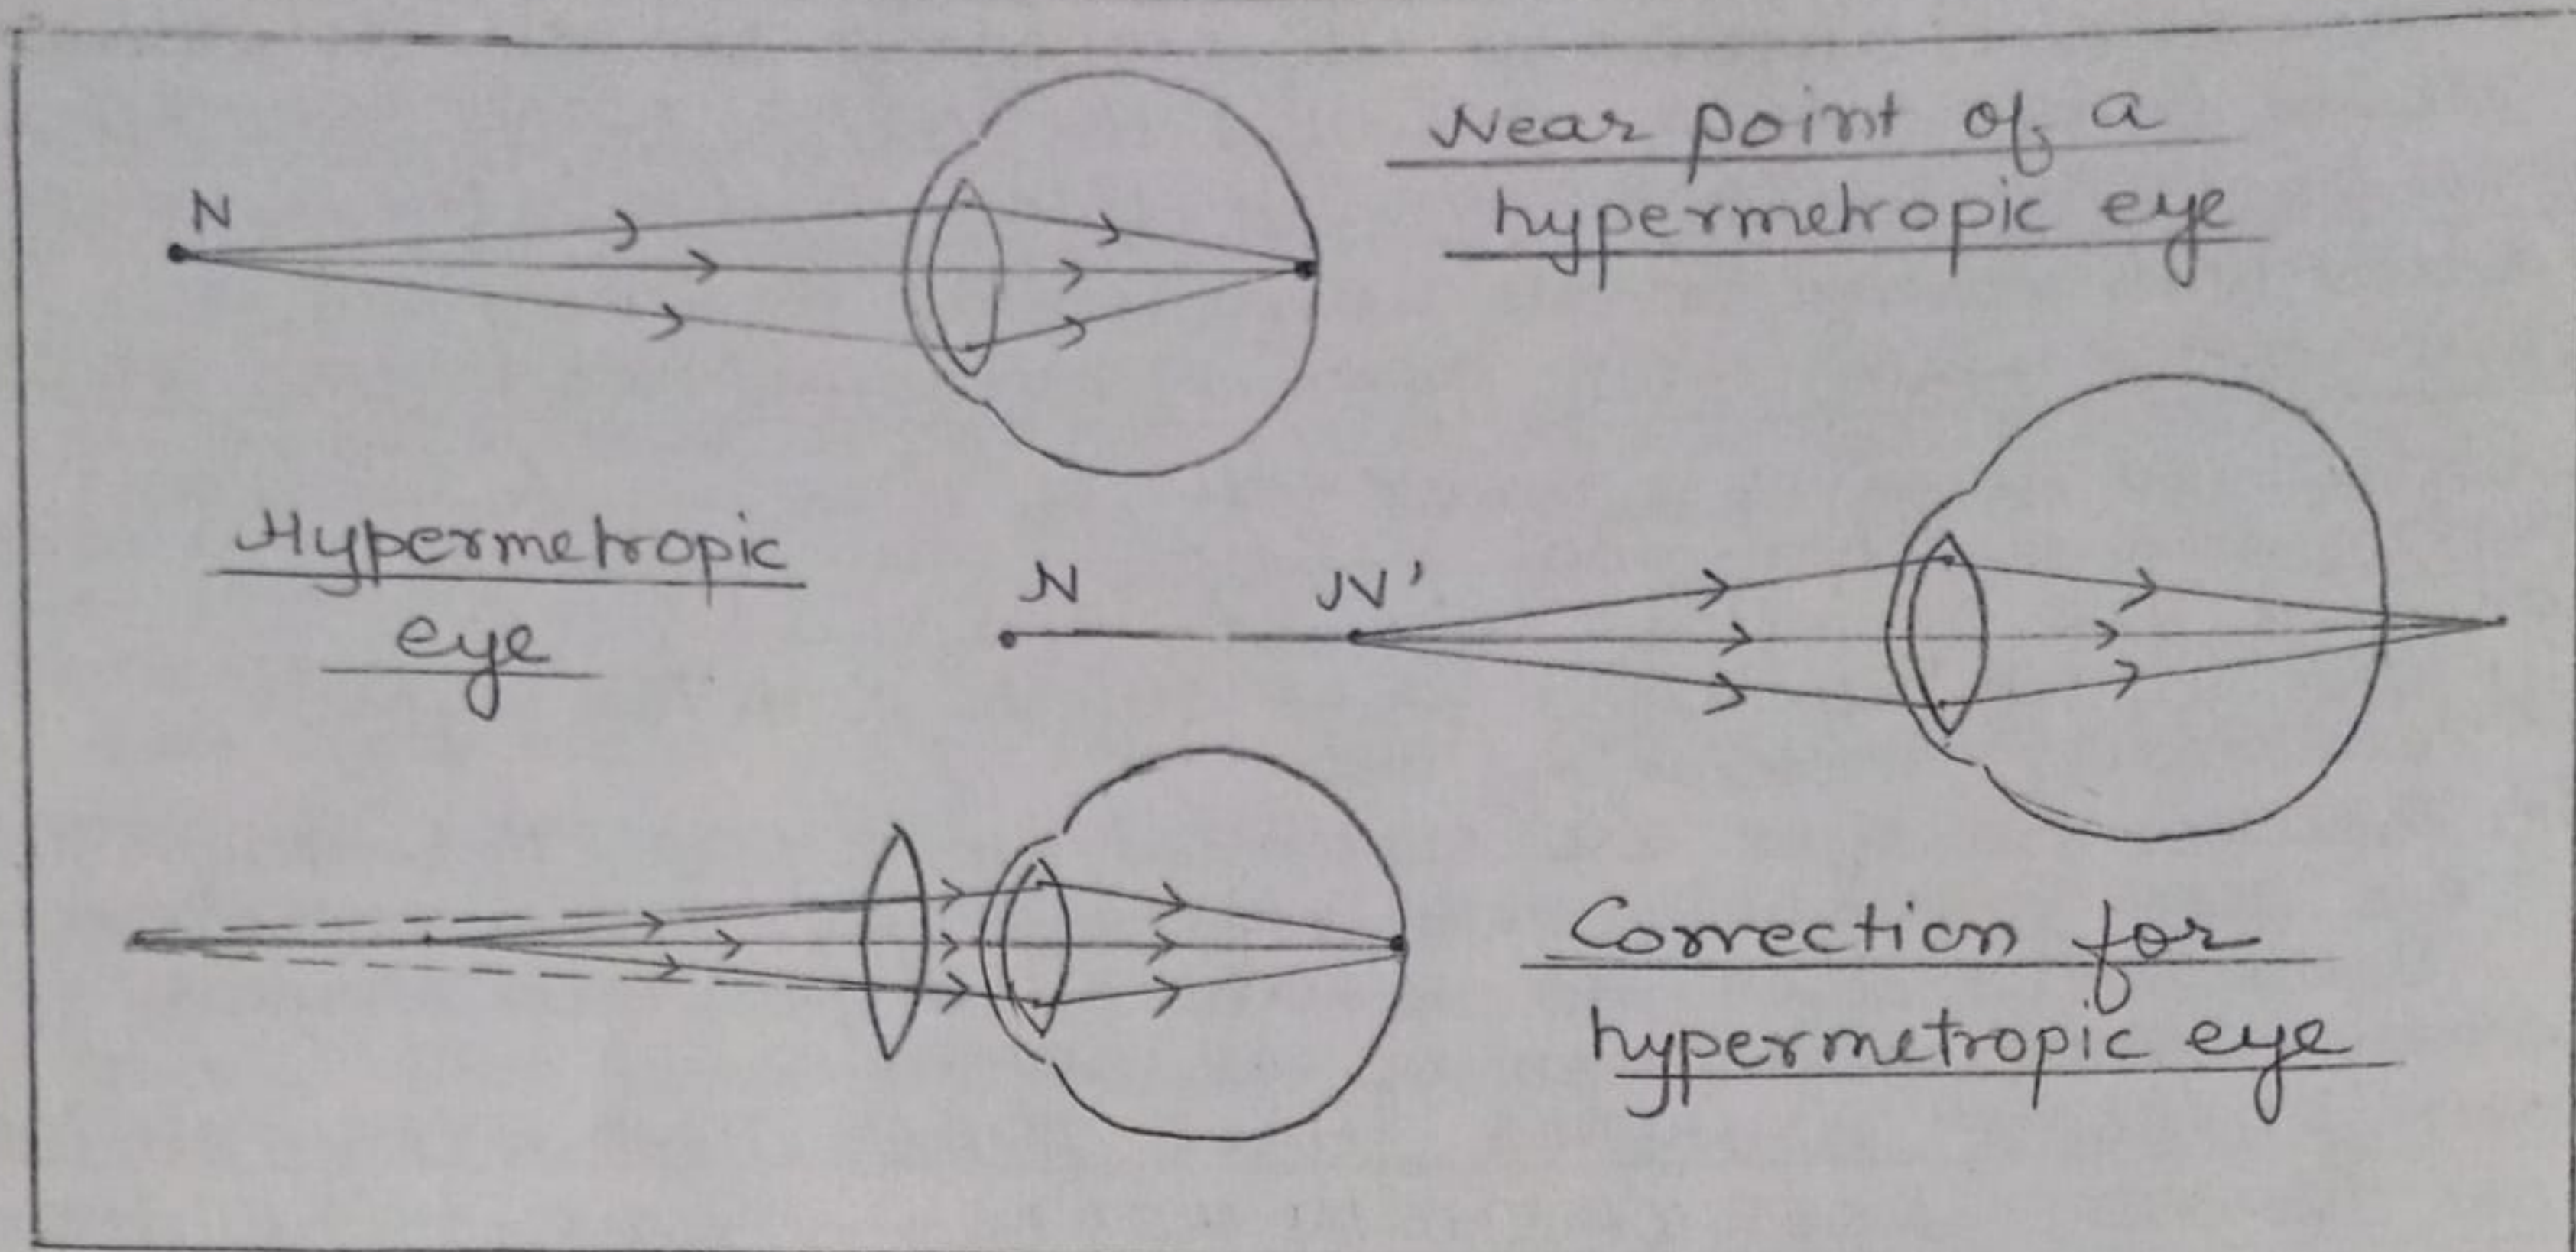 Near point of a
hypermetropic eye
N
Hypermetropic
eye
N
N'
Correction for
hypermetropic eye